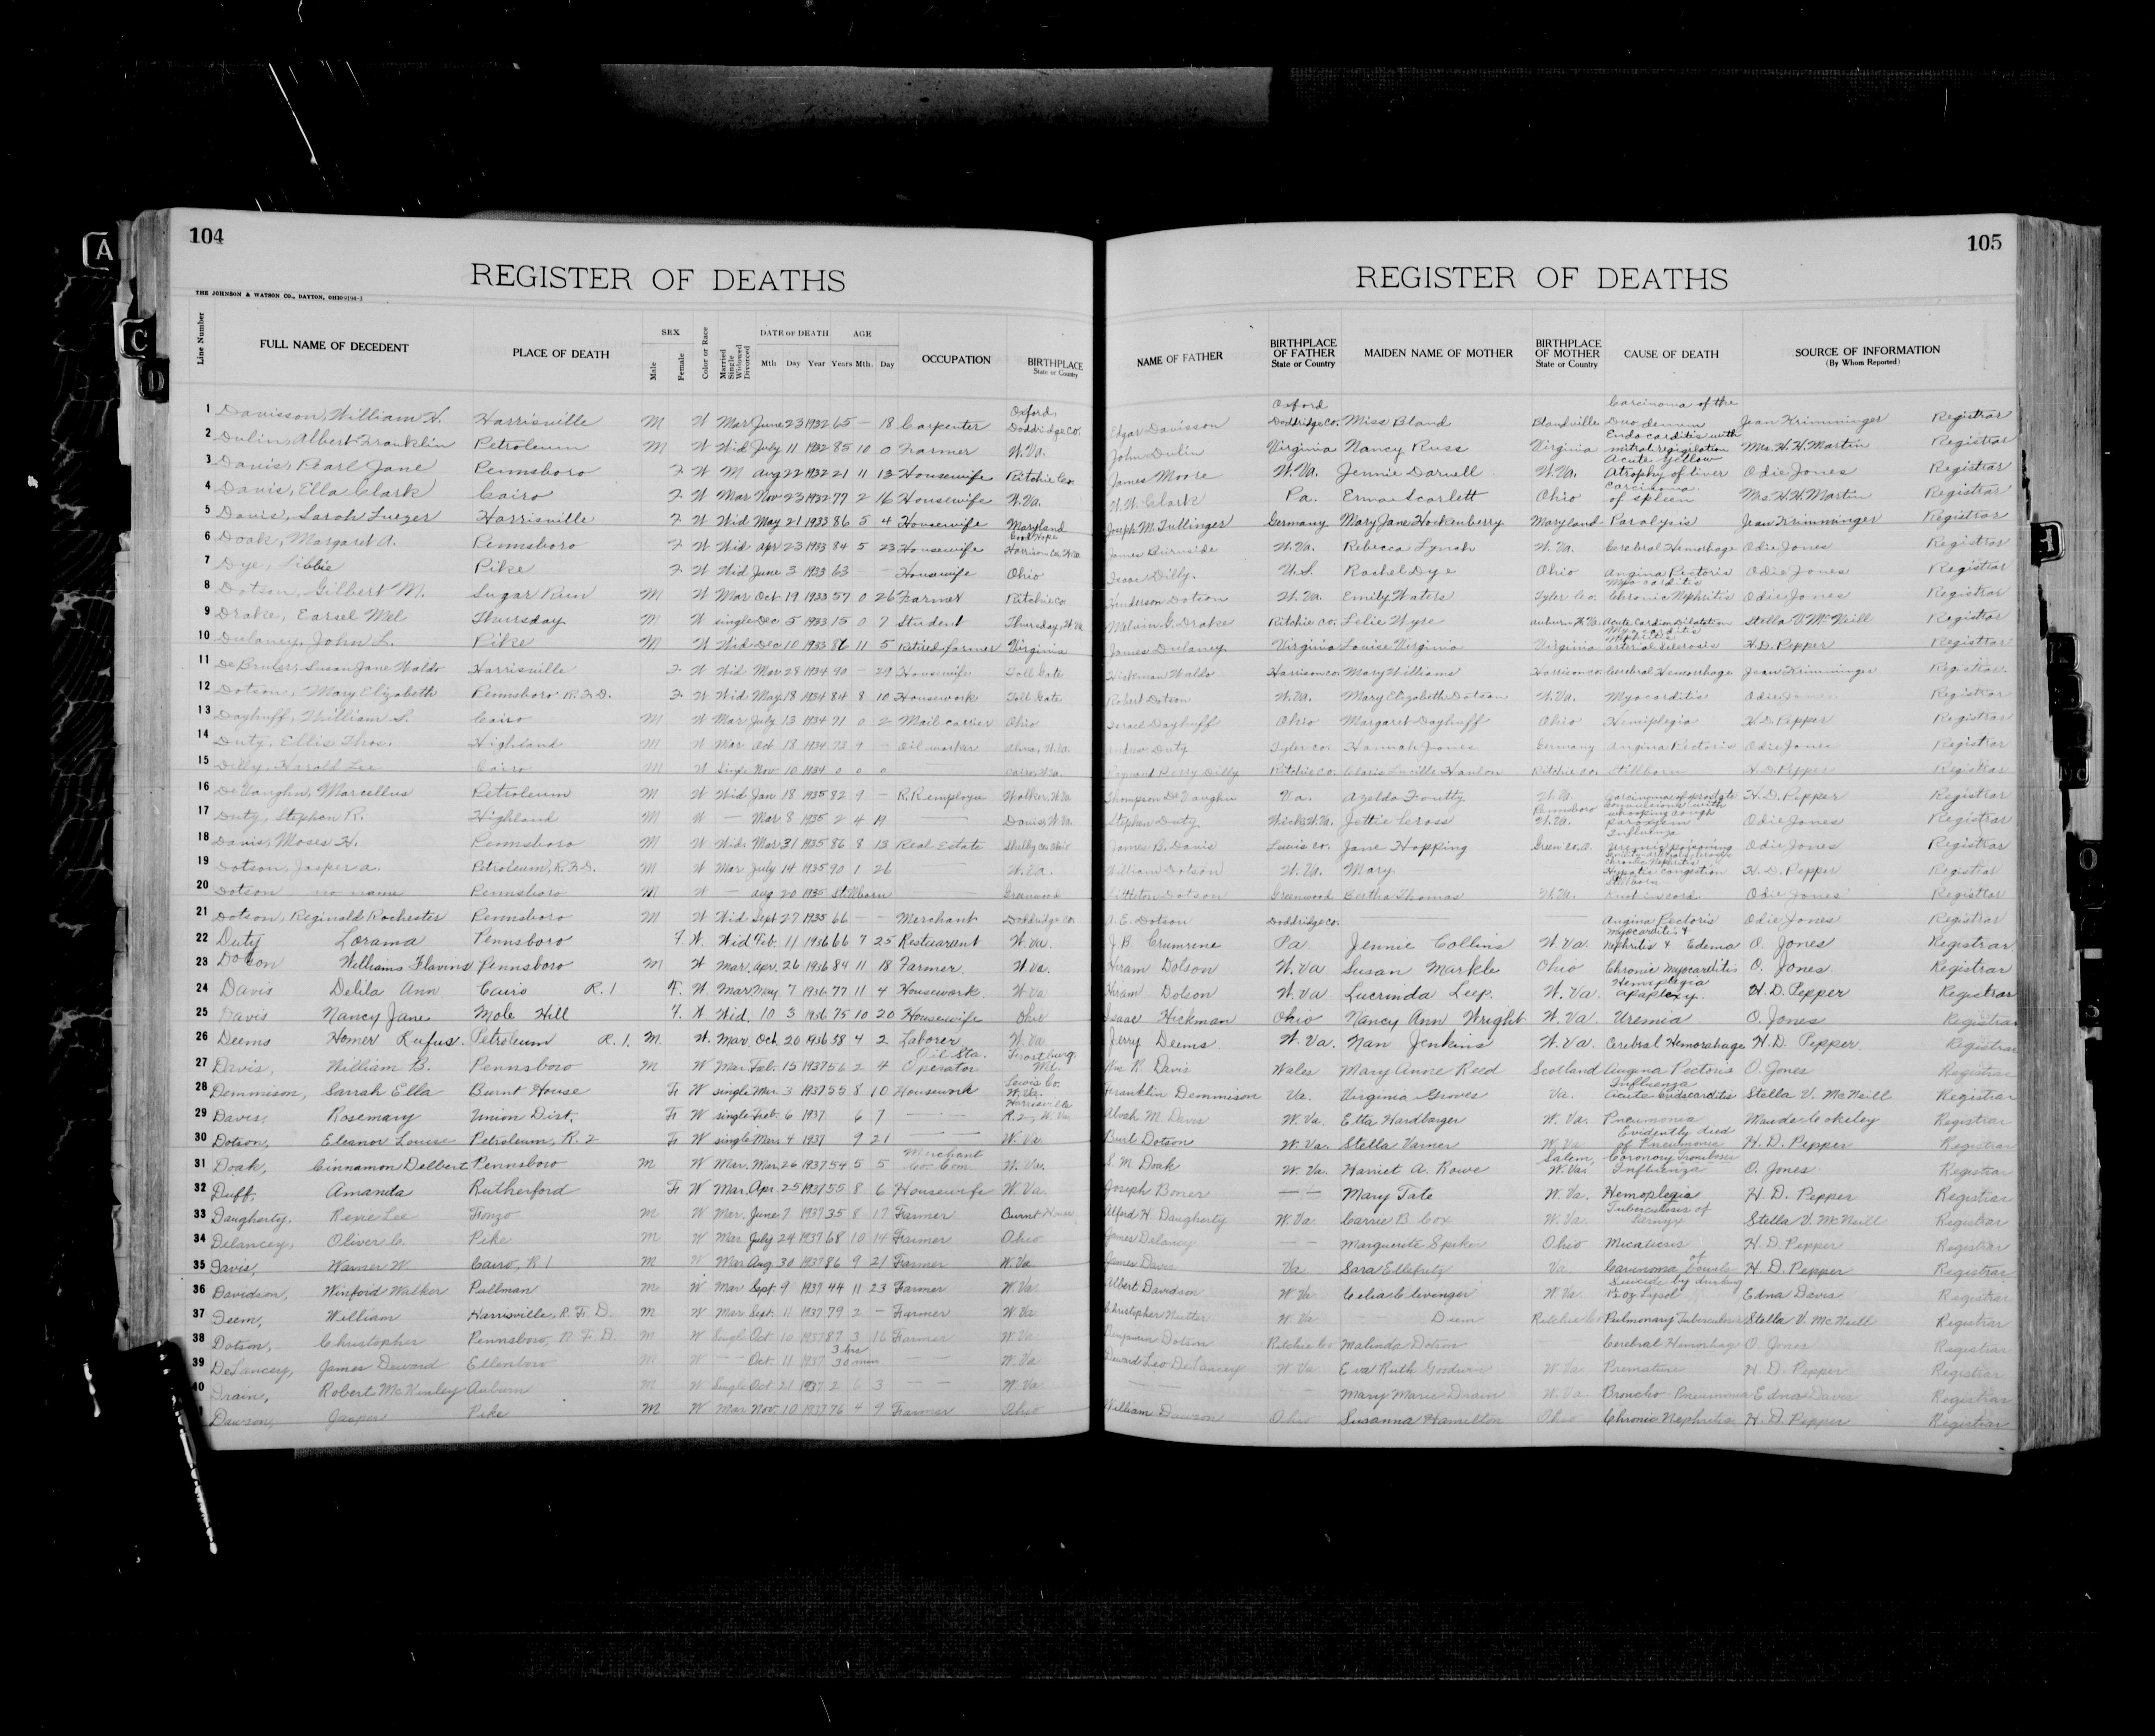 104
REGISTER OF DEATHS
THE JOHNSON & WATSON CO., DAYTON, OHIO
Line Number FULL NAME OF DECEDENT PLACE OF DEATH SEX Male Female Color or Race Married Single Widowed Divorced DATE OF DEATH Mth Day Year AGE Years Mth. Day OCCUPATION BIRTHPLACE State or Country
1 Davisson, William H. Harrisville M W Mar June 23 1932 65 — 18 Carpenter Oxford Doddridge Co.
2 Dulin, Albert Franklin Petroleum M W Wid July 11 1932 85 10 0 Farmer W.Va.
3 Davis, Pearl Jane Pennsboro F W M Aug 22 1932 21 11 13 Housewife Ritchie Co.
4 Davis, Ella Clark Cairo F W Mar Nov 23 1932 77 2 16 Housewife W.Va.
5 Davis, Sarah Harrisville F W Wid May 21 1933 86 5 4 Housewife Maryland
6 Doak, Margaret A. Pennsboro F W Wid Apr 23 1933 84 5 23 Housewife Good Hope Harrison Co. W.Va
7 Dye, Libbie Pike F W Wid June 3 1933 63 — — Housewife Ohio
8 Dotson, Gilbert M. Sugar Run M W Mar Oct 19 1933 57 0 26 Farmer Ritchie Co
9 Drake, Earsel Mel Thursday M W single Dec 5 1933 15 0 7 Student Thursday, W.Va
10 Dulaney, John L. Pike M W Wid Dec 10 1933 86 11 5 Retired farmer Virginia
11 Susan Jane Waldo Harrisville F W Wid Mar 28 1934 90 — 29 Housewife Toll Gate
12 Dotson, Mary Elizabeth Pennsboro R.F.D. F W Wid May 18 1934 84 8 10 Housework Toll Gate
13 Dayhuff, William S. Cairo M W Mar July 13 1934 71 0 2 Mail carrier Ohio
14 Duty, Ellis Thos. Highland M W Mar Oct 18 1934 73 9 — Oil worker Alma, W.Va.
15 Dilly, Harold Lee Cairo M W Single Nov 10 1934 0 0 0 Cairo W.Va.
16 De Vaughn, Marcellus Petroleum M W Wid Jan 18 1935 82 9 — R.R. employe Walker, W.Va
17 Duty, Stephen R. Highland M W — Mar 8 1935 2 4 —— W.Va.
18 Davis, Moses H. Pennsboro M W Wid. Mar 31 1935 86 8 13 Real Estate Shelby Co. Ohio
19 Dotson, Jasper A. Petroleum, R.F.D. M W Mar July 14 1935 90 1 26 —— W.Va.
20 Dotson — no name Pennsboro M W — Aug 20 1935 Stillborn —— Greenwood
21 Dotson, Reginald Rochester Pennsboro M W Wid Sept 27 1935 66 — — Merchant Doddridge Co
22 Duty Lorama Pennsboro F. W. Wid Feb. 11 1936 66 7 25 Restuarant W.Va.
23 Dotson Williams Flavius Pennsboro M W Mar. Apr. 26 1936 84 11 18 Farmer. W.Va.
24 Davis Delila Ann Cairo R.1 F. W. Mar May 7 1936 77 11 4 Housework W.Va
25 Davis Nancy Jane Mole Hill F. W. Wid. 10 3 1936 75 10 20 Housewife Ohio
26 Deems Homer Rufus. Petroleum R.1. M. W. Mar. Oct. 20 1936 58 4 2 Laborer W.Va
27 Davis, William B. Pennsboro M W Mar. Feb. 15 1937 56 2 4 Oil Sta. Operator Frostburg Md.
28 Dennison, Sarrah Ella Burnt House F W single Mar. 3 1937 55 8 10 Housework Lewis Co. W.Va.
29 Davis, Rosemary Union Dist. F W single Feb. 6 1937 6 7 —— Harrisville R.2, W.Va
30 Dotson, Eleanor Louise Petroleum, R.2 F W single Mar. 4 1937 9 21 —— W.Va.
31 Doak, Cinnamon Delbert Pennsboro M W Mar. Mar. 26 1937 54 5 5 Merchant Co. Com W.Va.
32 Duff, Amanda Rutherford F W Mar. Apr. 25 1937 55 8 6 Housewife W.Va.
33 Daugherty, Rexie Lee Fonzo M W Mar. June 7 1937 35 8 17 Farmer Burnt House
34 Delancey, Oliver C. Pike M W Mar. July 24 1937 68 10 14 Farmer Ohio
35 Davis, Warner W. Cairo, R 1 M W Mar Aug 30 1937 86 9 21 Farmer W.Va
36 Davidson, Winford Walker Pullman M W Mar Sept. 9 1937 44 11 23 Farmer W.Va
37 Deem, William Harrisville, R.F.D. M W Mar Sept. 11 1937 79 2 — Farmer W.Va
38 Dotson, Christopher Pennsboro, R.F.D. M W Single Oct 10 1937 87 3 16 Farmer W.Va
39 DeLancey, James Deward Ellenboro M W — Oct. 11 1937 3 hrs 30 min — W.Va
40 Drain, Robert McKinley Auburn M W Single Oct 21 1937 2 6 3 — W.Va
Dawson, Jasper Pike M W Mar Nov. 10 1937 76 4 9 Farmer Ohio
105
REGISTER OF DEATHS
NAME OF FATHER BIRTHPLACE OF FATHER State or Country MAIDEN NAME OF MOTHER BIRTHPLACE OF MOTHER State or Country CAUSE OF DEATH SOURCE OF INFORMATION (By Whom Reported)
Edgar Davisson Oxford Doddridge Co. Miss Bland Blandville Carcinoma of the Duodenum Jean Krimminger Registrar
John Dulin Virginia Nancy Russ Virginia Endocarditis with mitral Mrs. H.H. Martin Registrar
James Moore W.Va. Jennie Darnell W.Va. Acute yellow Atrophy of liver Odie Jones Registrar
W.W. Clark Pa. Erma Scarlett Ohio Carcinoma of spleen Mrs. H.H. Martin Registrar
Joseph M. Fullinger Germany Mary Jane Hockenberry Maryland Paralysis Jean Krimminger Registrar
James Burnside W.Va. Rebecca Lynch W.Va. Cerebral Hemorhage Odie Jones Registrar
Isaac Dilly. U.S. Rachel Dye Ohio Angina Pectoris Odie Jones Registrar
Henderson Dotson W.Va. Emily Waters Tyler Co. Myocarditis Chronic Nephritis Odie Jones Registrar
Melvin G. Drake Ritchie Co. Lelie Wyre Auburn W.Va. Acute Cardiac Dilatation Stella V. McNeill Registrar
James Dulaney Virginia Louise Virginia Virginia Myocarditis Nephritis arterial sclerosis H.D. Pepper Registrar
Hickman Waldo Harrison Co. Mary Williams Harrison Co. Cerebral Hemorrhage Jean Krimminger Registrar.
Robert Dotson W.Va. Mary Elizabeth Dotson W.Va. Myocarditis Odie Jones Registrar
Israel Dayhuff Ohio Margaret Dayhuff Ohio Hemiplegia H.D. Pepper Registrar
Andrew Duty Tyler Co. Hannah Jones Germany Angina Pectoris Odie Jones Registrar
Perry Dilly Ritchie Co. Cloris Lucille Hanlon Ritchie Co. Stillborn H.D. Pepper Registrar
Thompson De Vaughn Va. Azelda Foutty W.Va. Carcinoma of prostate H.D. Pepper Registrar
Stephen Duty Wick, W.Va. Jettie Cross Pennsboro W.Va. Convulsions with whooping cough paroxysm Odie Jones Registrar
James B. Davis Lewis Co. Jane Hopping Green Co. O. Influenza Uremic poisoning Odie Jones Registrar
William Dotson W.Va. Mary —— Chronic Nephritis Hypatic congestion H.D. Pepper Registrar
Littleton Dotson Greenwood Bertha Thomas W.Va. Stillborn— Knot in cord Odie Jones Registrar
A.E. Dotson Doddridge Co. — Angina Pectoris Odie Jones Registrar
J.B. Crumrine Pa Jennie Collins W.Va. Myocarditis & Nephritis & Edema O. Jones Registrar
Hiram Dolson W.Va Susan Markle Ohio Chronic Myocarditis O. Jones Registrar
Hiram Dolson W.Va Lucrinda Leep. W.Va. Hemiplegia apaplexy. H.D. Pepper Registrar
Isaac Hickman Ohio Nancy Ann Wright W.Va. Uremia O. Jones Registrar
Jerry Deems W.Va. Nan Jenkins W.Va. Cerebral Hemorahage H.D. Pepper. Registrar
Wm. R. Davis Wales Mary Anne Reed Scotland Angina Pectoris O. Jones Registrar
Franklin Dennison Va. Virginia Groves Va. Influenza Acute Endocarditis Stella V. McNeill Registrar
Alvah M. Davis W.Va. Etta Hardbarger W.Va. Pneumonia Maude Cokeley Registrar
Burl Dotson W.Va. Stella Varner W.Va Evidently died of Pneumonia H.D. Pepper Registrar
S.M. Doak W.Va. Harriet A. Rowe Salem, W.Va. Coronary Trombosis Influenza O. Jones Registrar
Joseph Boner — Mary Tate W.Va. Hemoplegia H.D. Pepper Registrar
Alford H. Daugherty W.Va. Carrie B. Cox W.Va. Tuberculosis of Larnyx Stella V. McNeill Registrar
James Delancy — Marguerite Spiker Ohio H.D. Pepper Registrar
James Davis Va Sara Ellefritz Va. Carinoma of bowels H.D. Pepper Registrar
Albert Davidson W.Va Celia Clevenger W.Va Suicide by drinking Lysol Edna Davis Registrar
Christopher Nutter W.Va Deem Ritchie Co Pulmonary Tuberculosis Stella V. McNeill Registrar
Benjamin Dotson Ritchie Co Malinda Dotson Cerebral Hemorhage O. Jones Registrar
Deward Leo DeLancey W.Va Eva Ruth Goodwin W.Va Premature H.D. Pepper Registrar
— Mary Marie Drain W.Va. Broncho Pneumonia Edna Davis Registrar
William Dawson Ohio Susanna Hamilton Ohio Chronic Nephritis H.D. Pepper Registrar
A
C
D